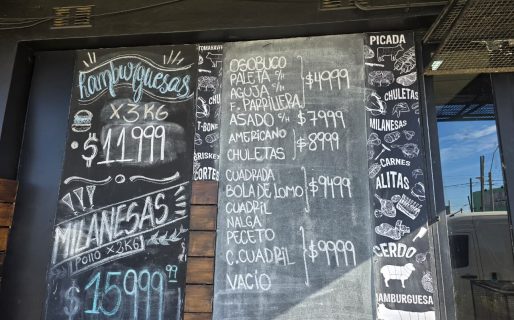 hamburguesas
x3KG
$11.999
MILANESAS
POLLO x2KG
$15999⁹⁹
T-BON
BRISKET
CORTES
OSOBUCO
PALETA S/H
AGUJA S/H
F. PARRILLERA
$4999
ASADO C/H
$7999
AMERICANO
CHULETAS
$8999
CUADRADA
BOLA DE LOMO
CUADRIL
NALGA
$9499
PECETO
C.CUADRIL
VACIO
$9999
PICADA
CHULETAS
MILANESAS
CARNES
ALITAS
CERDO
HAMBURGUESA